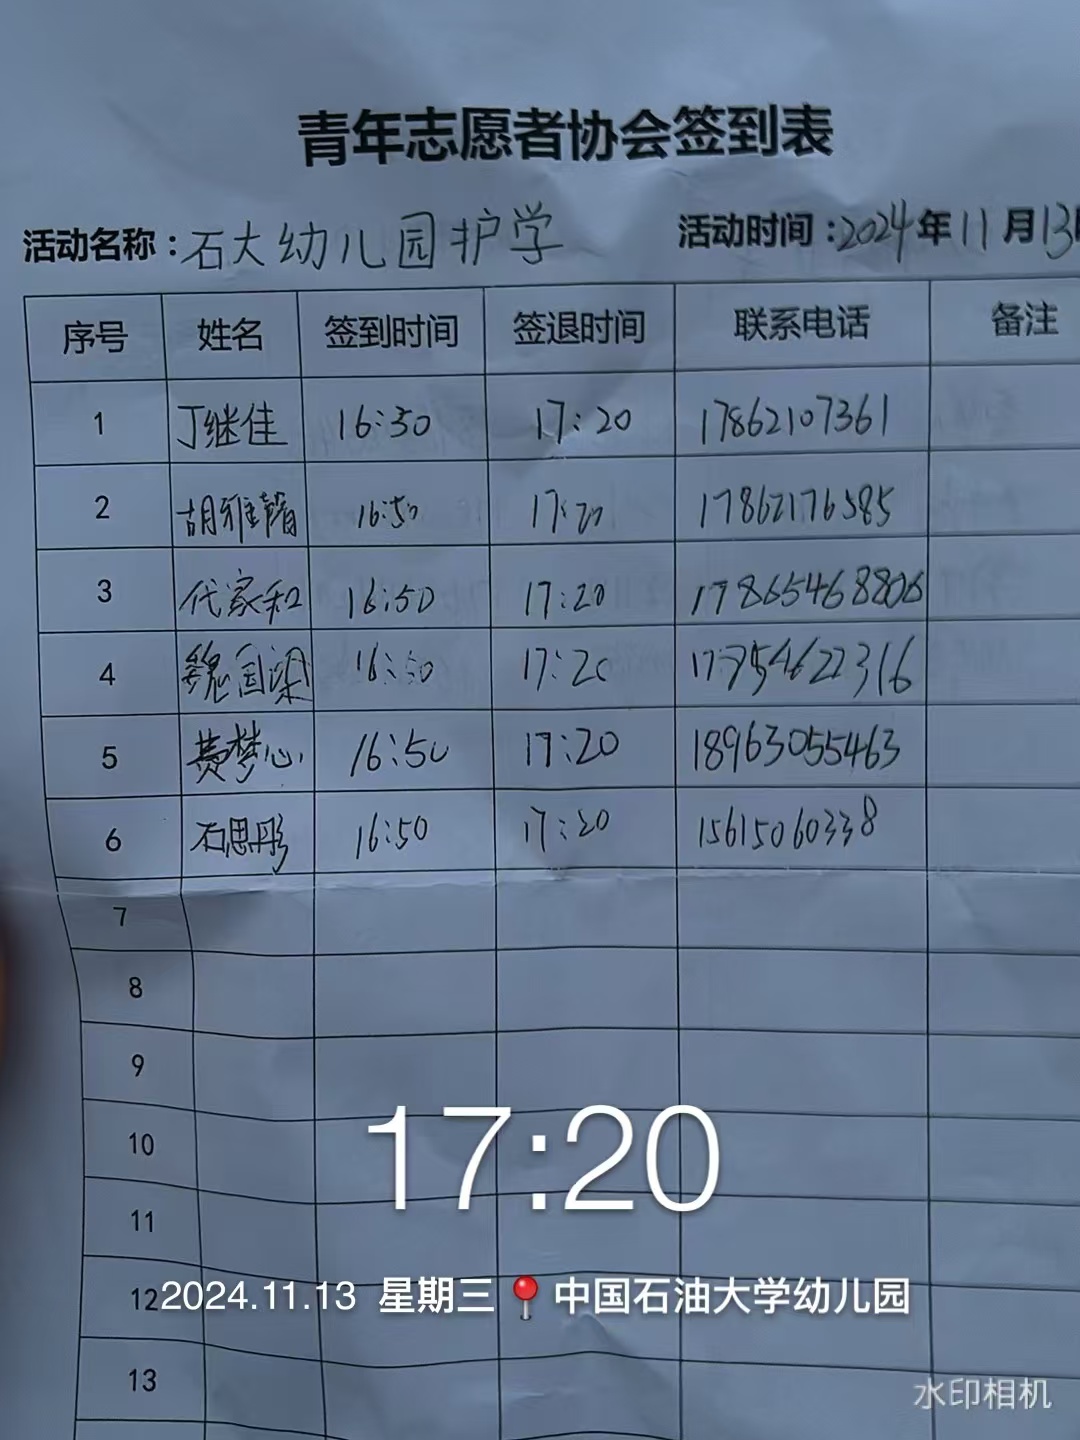 青年志愿者协会签到表
活动名称:石大幼儿园护学 活动时间:2024年11月13
序号 姓名 签到时间 签退时间 联系电话 备注
1 丁继佳 16:50 17:20 17862107361
2 胡雅馨 16:50 17:20 17862176585
3 代家和 16:50 17:20 17865468806
4 魏国梁 16:50 17:20
5 费梦心 16:50 17:20 18963055463
6 石思彤 16:50 17:20 15615060338
7
8
9
10
17:20
11
12
2024.11.13 星期三 中国石油大学幼儿园
13
水印相机